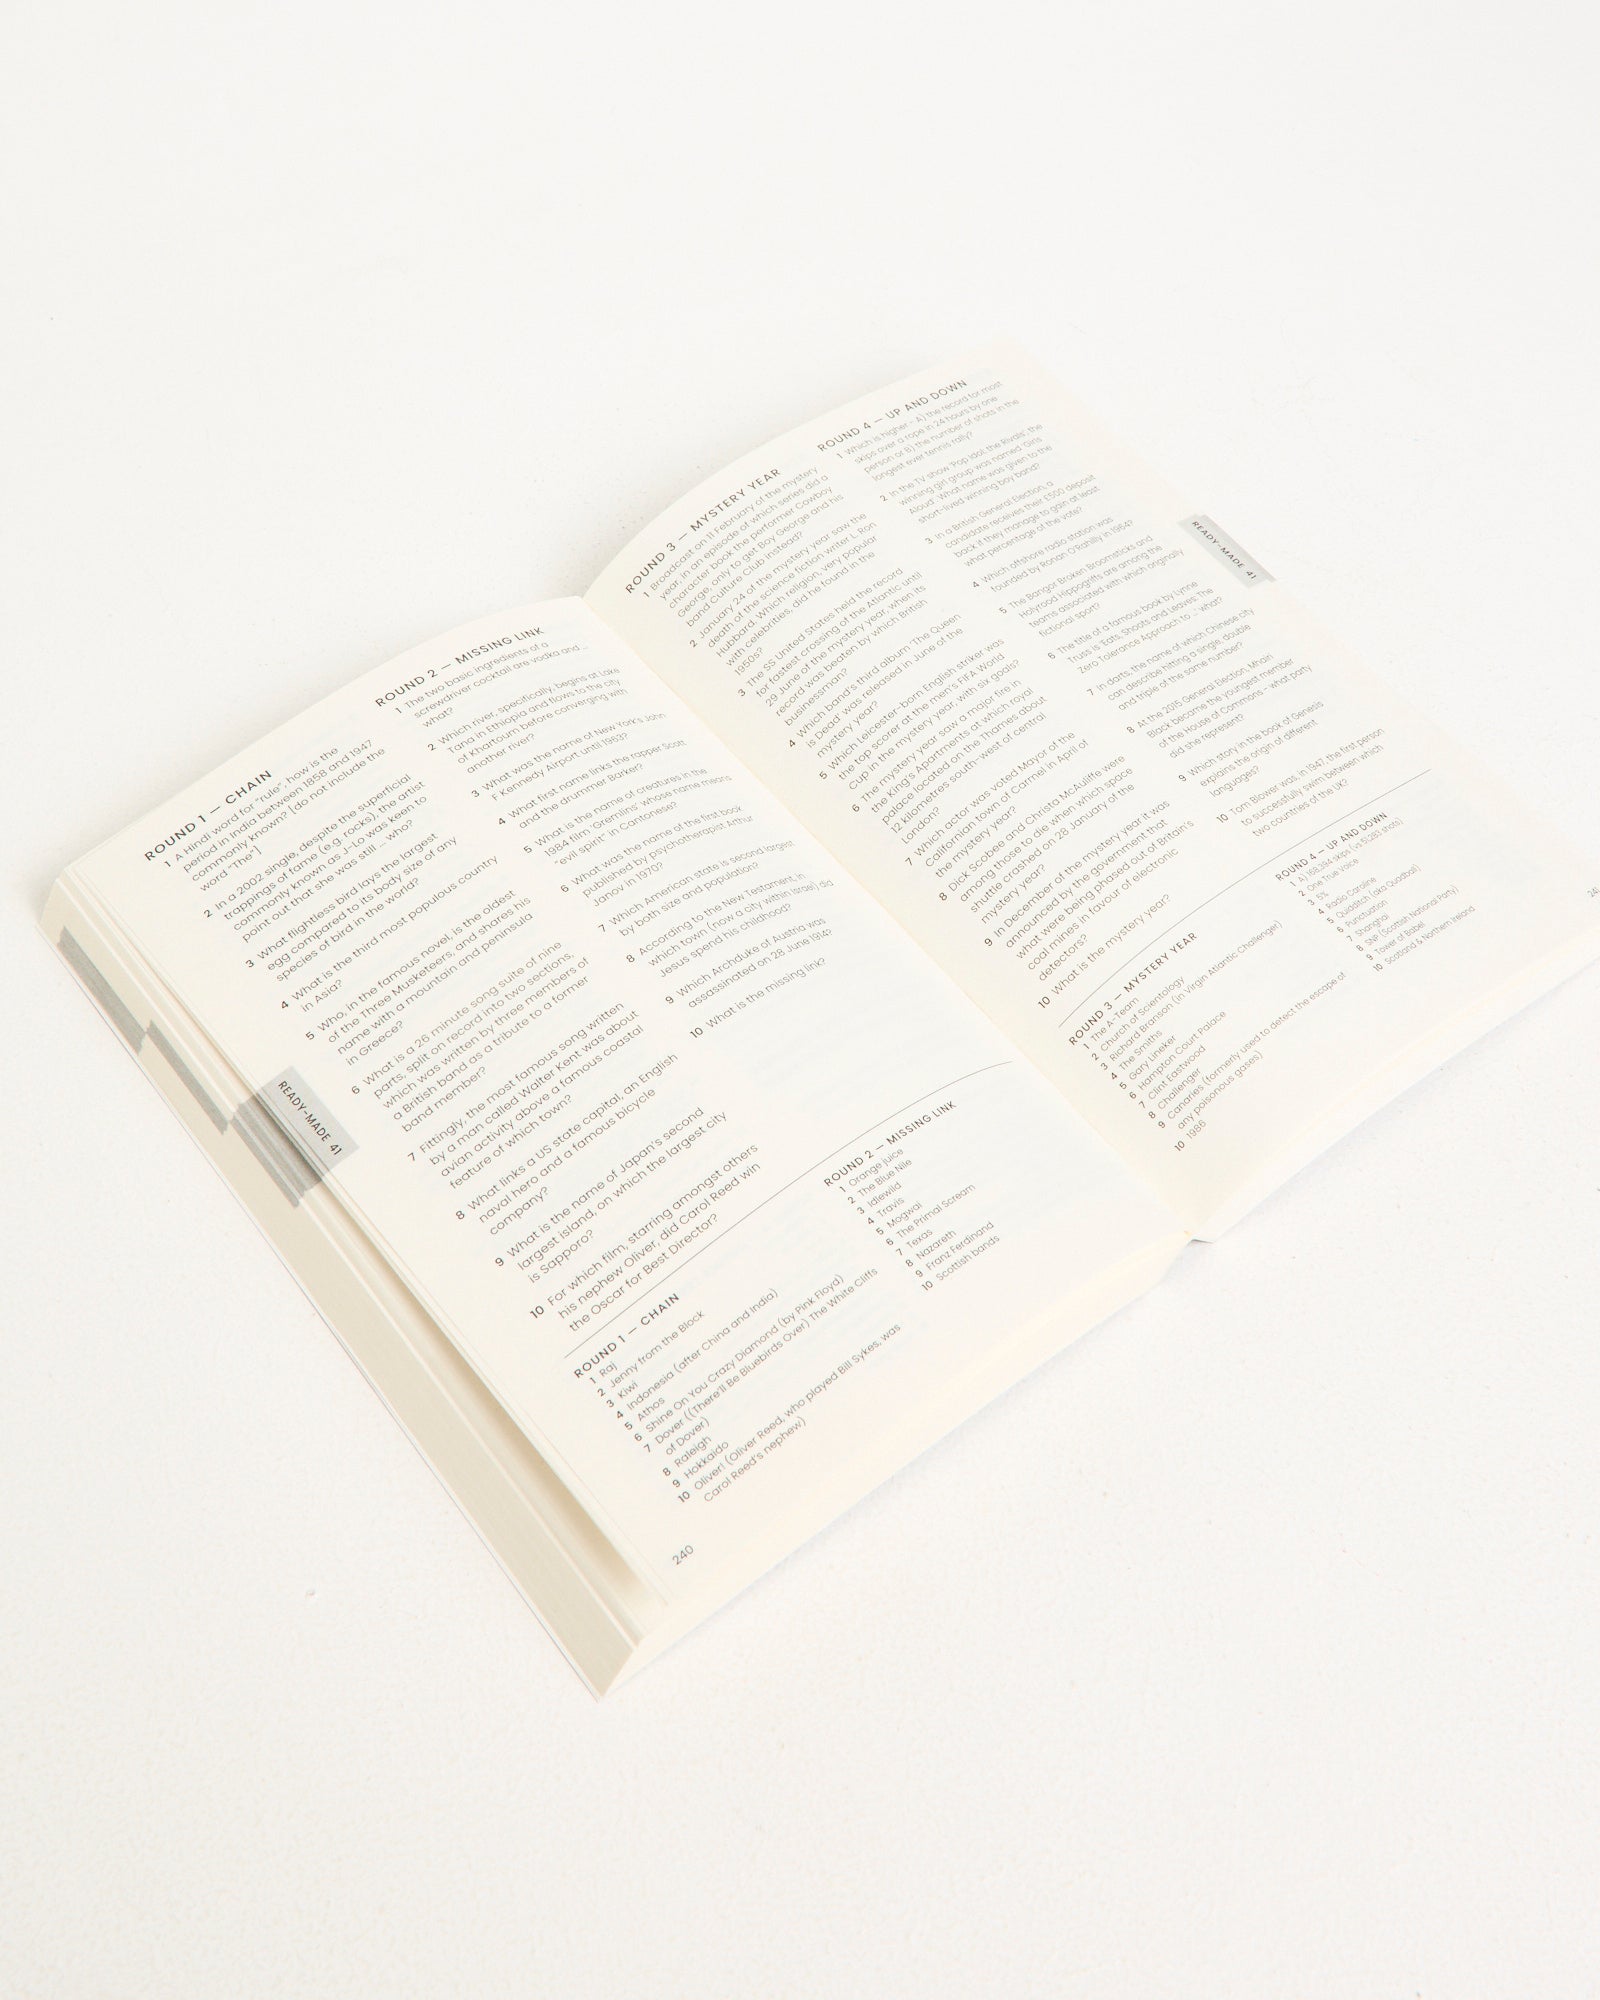 ROUND 1 – CHAIN
1 A Hindi word for "rule", how is the
period in India between 1858 and 1947
commonly known? [do not include the
word "The"]
2 In a 2002 single, despite the superficial
trappings of fame (e.g. rocks), the artist
commonly known as J-Lo was keen to
point out that she was still ... who?
3 What flightless bird lays the largest
egg compared to its body size of any
species of bird in the world?
4 What is the third most populous country
in Asia?
5 Who, in the famous novel, is the oldest
of the Three Musketeers, and shares his
name with a mountain and peninsula
in Greece?
6 What is a 26 minute song suite of nine
parts, split on record into two sections,
which was written by three members of
a British band as a tribute to a former
band member?
7 Fittingly, the most famous song written
by a man called Walter Kent was about
avian activity above a famous coastal
feature of which town?
8 What links a US state capital, an English
naval hero and a famous bicycle
company?
9 What is the name of Japan's second
largest island, on which the largest city
is Sapporo?
10 For which film, starring amongst others
his nephew Oliver, did Carol Reed win
the Oscar for Best Director?
ROUND 2 – MISSING LINK
1 The two basic ingredients of a
screwdriver cocktail are vodka and ...
what?
2 Which river, specifically, begins at Lake
Tana in Ethiopia and flows to the city
of Khartoum before converging with
another river?
3 What was the name of New York's John
F Kennedy Airport until 1963?
4 What first name links the rapper Scott
and the drummer Barker?
5 What is the name of creatures in the
1984 film 'Gremlins' whose name means
"evil spirit" in Cantonese?
6 What was the name of the first book
published by psychotherapist Arthur
Janov in 1970?
7 Which American state is second largest
by both size and population?
8 According to the New Testament, in
which town (now a city within Israel) did
Jesus spend his childhood?
9 Which Archduke of Austria was
assassinated on 28 June 1914?
10 What is the missing link?
ROUND 1 – CHAIN
1 Raj
2 Jenny from the Block
3 Kiwi
4 Indonesia (after China and India)
5 Athos
6 Shine On You Crazy Diamond (by Pink Floyd)
7 Dover ((There'll Be Bluebirds Over) The White Cliffs
of Dover)
8 Raleigh
9 Hokkaido
10 Oliver! (Oliver Reed, who played Bill Sykes, was
Carol Reed's nephew)
ROUND 2 – MISSING LINK
1 Orange juice
2 The Blue Nile
3 Idlewild
4 Travis
5 Mogwai
6 The Primal Scream
7 Texas
8 Nazareth
9 Franz Ferdinand
10 Scottish bands
READY-MADE 41
240
ROUND 3 – MYSTERY YEAR
1 Broadcast on 11 February of the mystery
year, in an episode of which series did a
character book the performer Cowboy
George, only to get Boy George and his
band Culture Club instead?
2 January 24 of the mystery year saw the
death of the science fiction writer L Ron
Hubbard. Which religion, very popular
with celebrities, did he found in the
1950s?
3 The SS United States held the record
for fastest crossing of the Atlantic until
29 June of the mystery year, when its
record was beaten by which British
businessman?
4 Which band's third album 'The Queen
is Dead' was released in June of the
mystery year?
5 Which Leicester-born English striker was
the top scorer at the men's FIFA World
Cup in the mystery year, with six goals?
6 The mystery year saw a major fire in
the King's Apartments at which royal
palace located on the Thames about
12 kilometres south-west of central
London?
7 Which actor was voted Mayor of the
Californian town of Carmel in April of
the mystery year?
8 Dick Scobee and Christa McAuliffe were
among those to die when which space
shuttle crashed on 28 January of the
mystery year?
9 In December of the mystery year it was
announced by the government that
what were being phased out of Britain's
coal mines in favour of electronic
detectors?
10 What is the mystery year?
ROUND 4 – UP AND DOWN
1 Which is higher - A) the record for most
skips over a rope in 24 hours by one
person or B) the number of shots in the
longest ever tennis rally?
2 In the TV show 'Pop Idol: the Rivals', the
winning girl group was named 'Girls
Aloud'. What name was given to the
short-lived winning boy band?
3 In a British General Election, a
candidate receives their £500 deposit
back if they manage to gain at least
what percentage of the vote?
4 Which offshore radio station was
founded by Ronan O'Rahilly in 1964?
5 The Bangor Broken Broomsticks and
Holyrood Hippogriffs are among the
teams associated with which originally
fictional sport?
6 The title of a famous book by Lynne
Truss is 'Eats, Shoots and Leaves: The
Zero Tolerance Approach to ...' what?
7 In darts, the name of which Chinese city
can describe hitting a single, double
and triple of the same number?
8 At the 2015 General Election, Mhairi
Black became the youngest member
of the House of Commons - what party
did she represent?
9 Which story in the book of Genesis
explains the origin of different
languages?
10 Tom Blower was, in 1947, the first person
to successfully swim between which
two countries of the UK?
ROUND 3 – MYSTERY YEAR
1 The A-Team
2 Church of Scientology
3 Richard Branson (in Virgin Atlantic Challenger)
4 The Smiths
5 Gary Lineker
6 Hampton Court Palace
7 Clint Eastwood
8 Challenger
9 Canaries (formerly used to detect the escape of
any poisonous gases)
10 1986
ROUND 4 – UP AND DOWN
1 A) 168,394 skips (vs 51,283 shots)
2 One True Voice
3 5%
4 Radio Caroline
5 Quidditch (aka Quadball)
6 Punctuation
7 Shanghai
8 SNP (Scottish National Party)
9 Tower of Babel
10 Scotland & Northern Ireland
READY-MADE 41